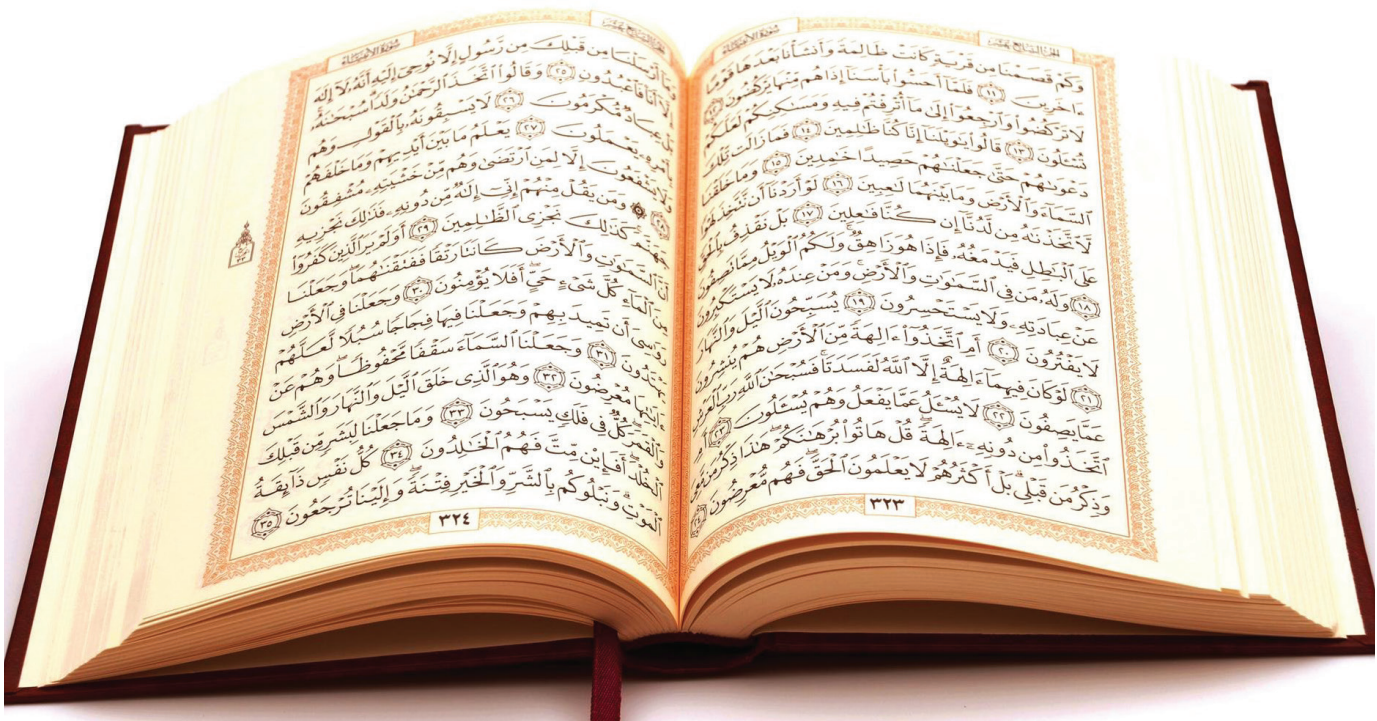 الجُزءُ السَّابِعَ عَشَرَ
سُورَةُ الأَنبِيَاءِ
وَكَمْ قَصَمْنَا مِن قَرْيَةٍ كَانَتْ ظَالِمَةً وَأَنشَأْنَا بَعْدَهَا قَوْمًا
ءَاخَرِينَ ١١ فَلَمَّآ أَحَسُّوا۟ بَأْسَنَآ إِذَا هُم مِّنْهَا يَرْكُضُونَ ١٢
لَا تَرْكُضُوا۟ وَٱرْجِعُوٓا۟ إِلَىٰ مَآ أُتْرِفْتُمْ فِيهِ وَمَسَٰكِنِكُمْ لَعَلَّكُمْ
تُسْـَٔلُونَ ١٣ قَالُوا۟ يَٰوَيْلَنَآ إِنَّا كُنَّا ظَٰلِمِينَ ١٤ فَمَا زَالَت تِّلْكَ
دَعْوَىٰهُمْ حَتَّىٰ جَعَلْنَٰهُمْ حَصِيدًا خَٰمِدِينَ ١٥ وَمَا خَلَقْنَا
ٱلسَّمَآءَ وَٱلْأَرْضَ وَمَا بَيْنَهُمَا لَٰعِبِينَ ١٦ لَوْ أَرَدْنَآ أَن نَّتَّخِذَ لَهْوًا
لَّٱتَّخَذْنَٰهُ مِن لَّدُنَّآ إِن كُنَّا فَٰعِلِينَ ١٧ بَلْ نَقْذِفُ بِٱلْحَقِّ
عَلَى ٱلْبَٰطِلِ فَيَدْمَغُهُۥ فَإِذَا هُوَ زَاهِقٌ ۚ وَلَكُمُ ٱلْوَيْلُ مِمَّا تَصِفُونَ
١٨ وَلَهُۥ مَن فِى ٱلسَّمَٰوَٰتِ وَٱلْأَرْضِ ۚ وَمَنْ عِندَهُۥ لَا يَسْتَكْبِرُونَ
عَنْ عِبَادَتِهِۦ وَلَا يَسْتَحْسِرُونَ ١٩ يُسَبِّحُونَ ٱلَّيْلَ وَٱلنَّهَارَ
لَا يَفْتُرُونَ ٢٠ أَمِ ٱتَّخَذُوٓا۟ ءَالِهَةً مِّنَ ٱلْأَرْضِ هُمْ يُنشِرُونَ
٢١ لَوْ كَانَ فِيهِمَآ ءَالِهَةٌ إِلَّا ٱللَّهُ لَفَسَدَتَا ۚ فَسُبْحَٰنَ ٱللَّهِ رَبِّ ٱلْعَرْشِ
عَمَّا يَصِفُونَ ٢٢ لَا يُسْـَٔلُ عَمَّا يَفْعَلُ وَهُمْ يُسْـَٔلُونَ ٢٣ أَمِ
ٱتَّخَذُوا۟ مِن دُونِهِۦٓ ءَالِهَةً ۖ قُلْ هَاتُوا۟ بُرْهَٰنَكُمْ ۖ هَٰذَا ذِكْرُ مَن مَّعِىَ
وَذِكْرُ مَن قَبْلِى ۗ بَلْ أَكْثَرُهُمْ لَا يَعْلَمُونَ ٱلْحَقَّ ۖ فَهُم مُّعْرِضُونَ ٢٤
٣٢٣
الجُزءُ السَّابِعَ عَشَرَ
سُورَةُ الأَنبِيَاءِ
وَمَآ أَرْسَلْنَا مِن قَبْلِكَ مِن رَّسُولٍ إِلَّا نُوحِىٓ إِلَيْهِ أَنَّهُۥ لَآ إِلَٰهَ
إِلَّآ أَنَا۠ فَٱعْبُدُونِ ٢٥ وَقَالُوا۟ ٱتَّخَذَ ٱلرَّحْمَٰنُ وَلَدًا ۗ سُبْحَٰنَهُۥ ۚ
بَلْ عِبَادٌ مُّكْرَمُونَ ٢٦ لَا يَسْبِقُونَهُۥ بِٱلْقَوْلِ وَهُم
بِأَمْرِهِۦ يَعْمَلُونَ ٢٧ يَعْلَمُ مَا بَيْنَ أَيْدِيهِمْ وَمَا خَلْفَهُمْ
وَلَا يَشْفَعُونَ إِلَّا لِمَنِ ٱرْتَضَىٰ وَهُم مِّنْ خَشْيَتِهِۦ مُشْفِقُونَ
٢٨ ۞ وَمَن يَقُلْ مِنْهُمْ إِنِّىٓ إِلَٰهٌ مِّن دُونِهِۦ فَذَٰلِكَ نَجْزِيهِ
جَهَنَّمَ ۚ كَذَٰلِكَ نَجْزِى ٱلظَّٰلِمِينَ ٢٩ أَوَلَمْ يَرَ ٱلَّذِينَ كَفَرُوٓا۟
أَنَّ ٱلسَّمَٰوَٰتِ وَٱلْأَرْضَ كَانَتَا رَتْقًا فَفَتَقْنَٰهُمَا ۖ وَجَعَلْنَا
مِنَ ٱلْمَآءِ كُلَّ شَىْءٍ حَىٍّ ۖ أَفَلَا يُؤْمِنُونَ ٣٠ وَجَعَلْنَا فِى ٱلْأَرْضِ
رَوَٰسِىَ أَن تَمِيدَ بِهِمْ وَجَعَلْنَا فِيهَا فِجَاجًا سُبُلًا لَّعَلَّهُمْ
يَهْتَدُونَ ٣١ وَجَعَلْنَا ٱلسَّمَآءَ سَقْفًا مَّحْفُوظًا ۖ وَهُمْ عَنْ
ءَايَٰتِهَا مُعْرِضُونَ ٣٢ وَهُوَ ٱلَّذِى خَلَقَ ٱلَّيْلَ وَٱلنَّهَارَ وَٱلشَّمْسَ
وَٱلْقَمَرَ ۖ كُلٌّ فِى فَلَكٍ يَسْبَحُونَ ٣٣ وَمَا جَعَلْنَا لِبَشَرٍ مِّن قَبْلِكَ
ٱلْخُلْدَ ۖ أَفَإِي۟ن مِّتَّ فَهُمُ ٱلْخَٰلِدُونَ ٣٤ كُلُّ نَفْسٍ ذَآئِقَةُ
ٱلْمَوْتِ ۗ وَنَبْلُوكُم بِٱلشَّرِّ وَٱلْخَيْرِ فِتْنَةً ۖ وَإِلَيْنَا تُرْجَعُونَ ٣٥
٣٢٤